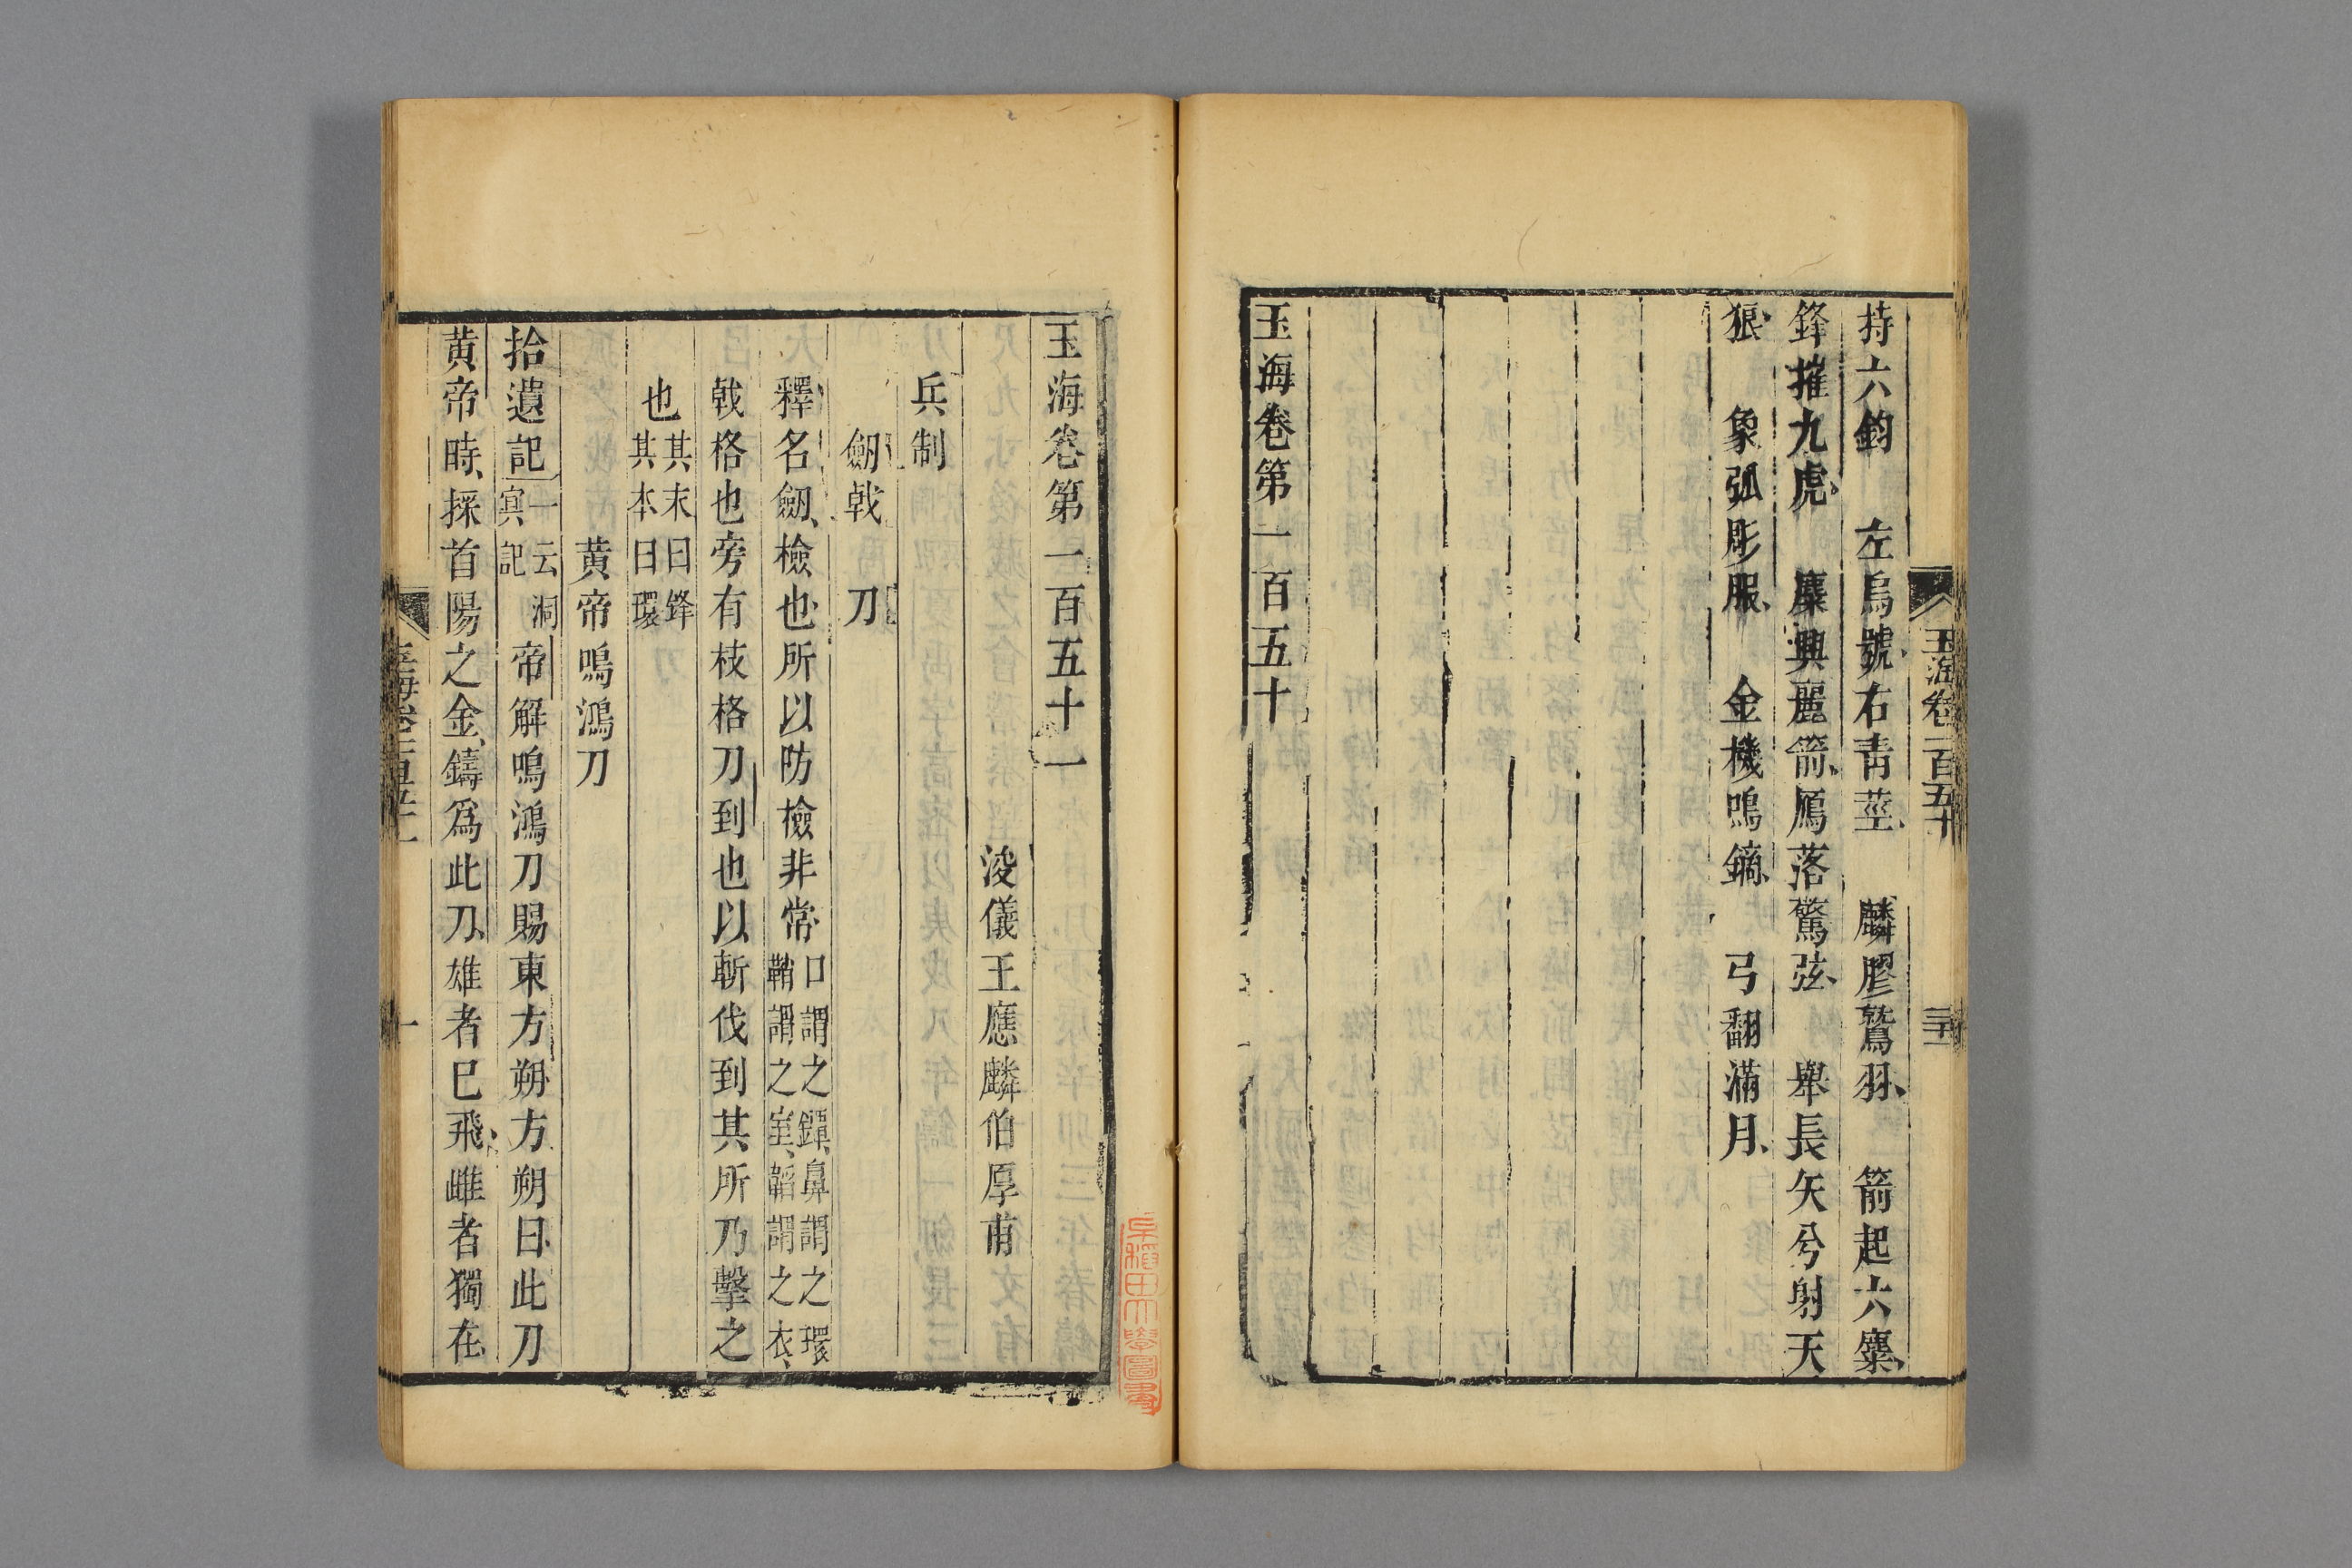 持六鈞　左烏號右青莖　麟膠鷲羽　箭起六麋
鋒摧九虎　麋興麗箭鴈落驚弦　舉長矢兮射天
狼　象弧彫服　金機鳴鏑　弓翻滿月
玉海卷第一百五十
玉海卷一百五十
玉海卷第一百五十一
浚儀王應麟伯厚甫
兵制
劒戟　刀
釋名劒檢也所以防檢非常口謂之鐔鼻謂之璏鞘謂之室韜謂之衣
戟格也旁有枝格刀到也以斬伐到其所乃擊之
也其末曰鋒其本曰環
黃帝鳴鴻刀
拾遺記一云洞冥記帝解鳴鴻刀賜東方朔方朔曰此刀
黃帝時採首陽之金鑄爲此刀雄者已飛雌者獨在
一
早稻田大學圖書